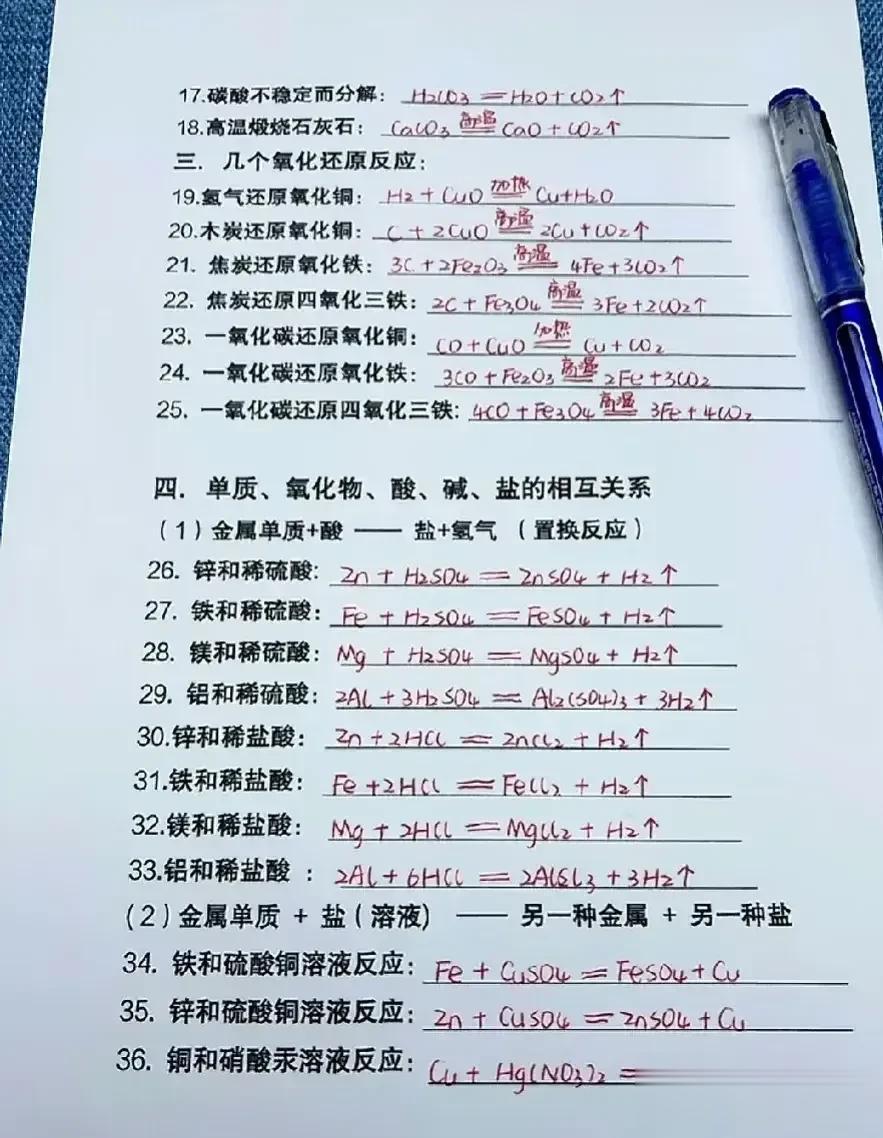 17.碳酸不稳定而分解： H2CO3 == H2O+CO2↑
18.高温煅烧石灰石： CaCO3 高温== CaO+CO2↑
三. 几个氧化还原反应：
19.氢气还原氧化铜： H2+CuO 加热== Cu+H2O
20.木炭还原氧化铜： C+2CuO 高温== 2Cu+CO2↑
21. 焦炭还原氧化铁： 3C+2Fe2O3 高温== 4Fe+3CO2↑
22. 焦炭还原四氧化三铁： 2C+Fe3O4 高温== 3Fe+2CO2↑
23. 一氧化碳还原氧化铜： CO+CuO 加热== Cu+CO2
24. 一氧化碳还原氧化铁： 3CO+Fe2O3 高温== 2Fe+3CO2
25. 一氧化碳还原四氧化三铁: 4CO+Fe3O4 高温== 3Fe+4CO2
四. 单质、氧化物、酸、碱、盐的相互关系
（1）金属单质+酸 —— 盐+氢气 （置换反应）
26. 锌和稀硫酸: Zn+H2SO4 == ZnSO4+H2↑
27. 铁和稀硫酸： Fe+H2SO4 == FeSO4+H2↑
28. 镁和稀硫酸： Mg+H2SO4 == MgSO4+H2↑
29. 铝和稀硫酸： 2Al+3H2SO4 == Al2(SO4)3+3H2↑
30.锌和稀盐酸： Zn+2HCl == ZnCl2+H2↑
31.铁和稀盐酸： Fe+2HCl == FeCl2+H2↑
32.镁和稀盐酸： Mg+2HCl == MgCl2+H2↑
33.铝和稀盐酸 ： 2Al+6HCl == 2AlCl3+3H2↑
(2)金属单质 + 盐(溶液) —— 另一种金属 + 另一种盐
34. 铁和硫酸铜溶液反应： Fe+CuSO4 == FeSO4+Cu
35. 锌和硫酸铜溶液反应： Zn+CuSO4 == ZnSO4+Cu
36. 铜和硝酸汞溶液反应： Cu+Hg(NO3)2 ==